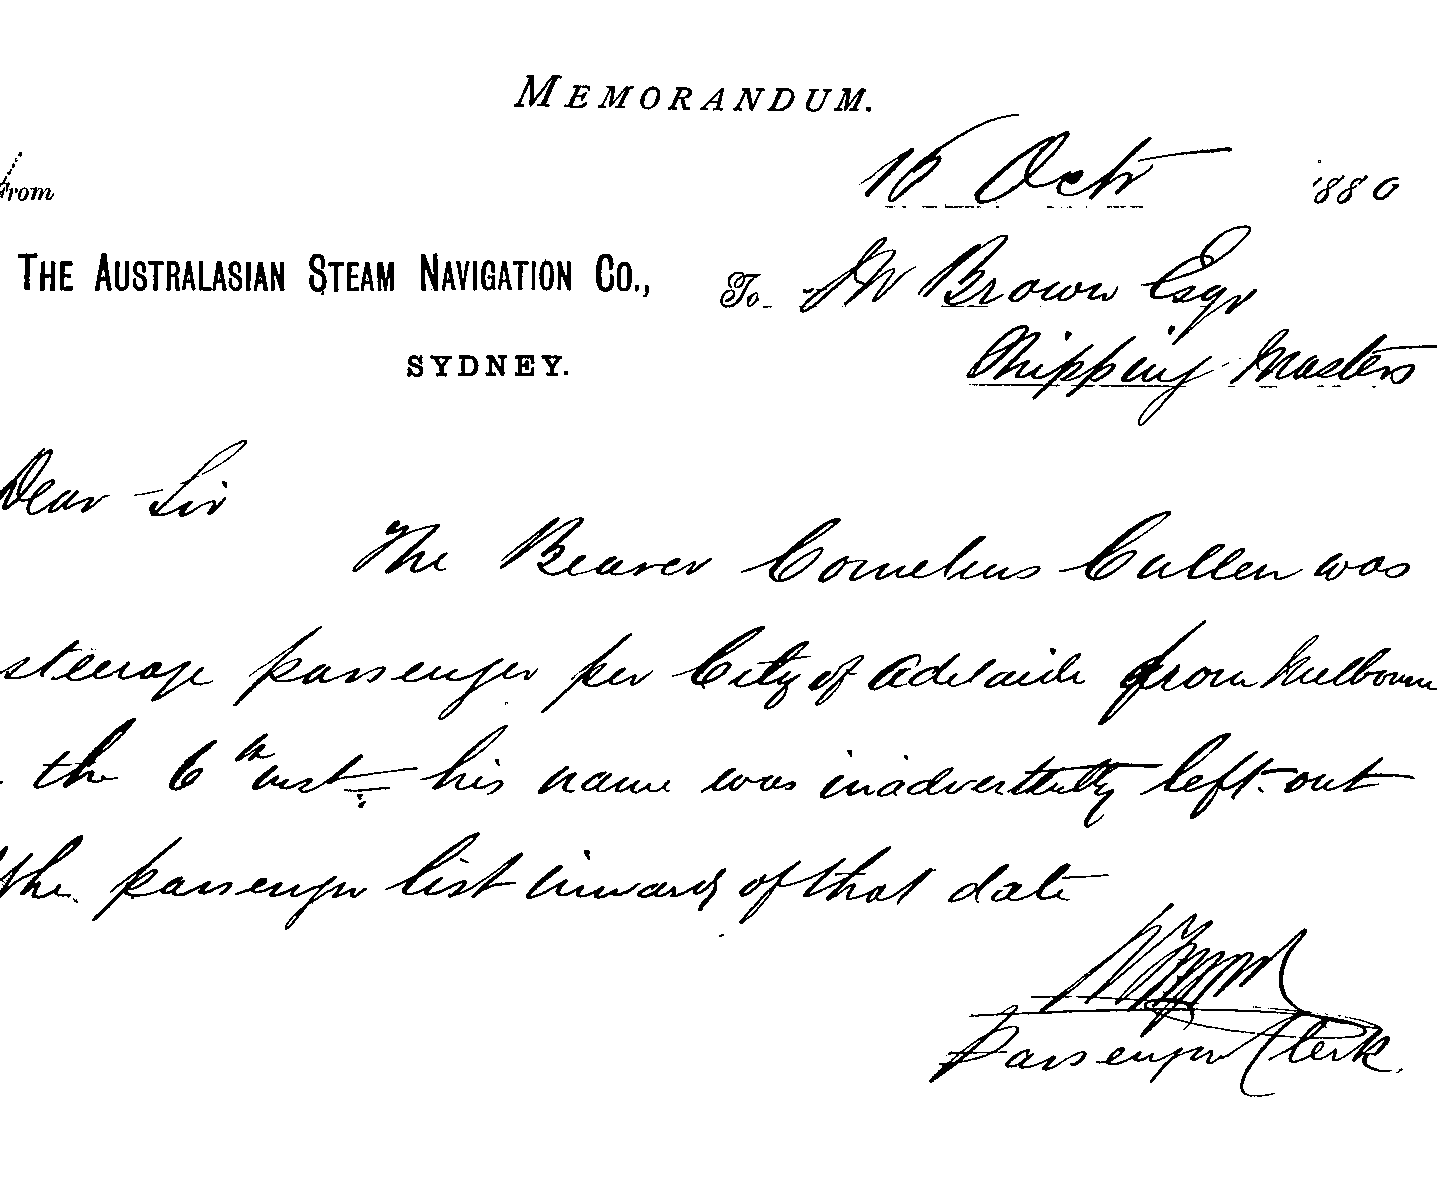 MEMORANDUM.
From 15 Octr 1880
THE AUSTRALASIAN STEAM NAVIGATION CO., To JW Brown Esqr
SYDNEY. Shipping Masters
Dear Sir
The Bearer Cornelius Cullen was
steerage passenger per City of Adelaide from Melbourne
the 6th inst his name was inadvertently left out
the passenger list inwards of that date
Passenger Clerk.